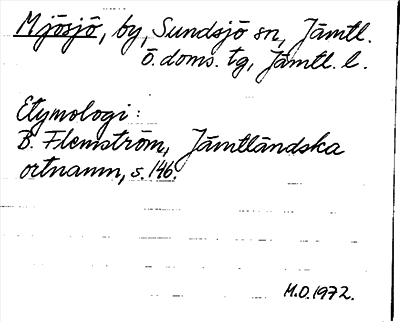 Mjösjö, by, Sundsjö sn, Jämtl.
ö. doms. tg, Jämtl. l.
Etymologi:
B. Flemström, Jämtländska
ortnamn, s. 146.
M.O. 1972.